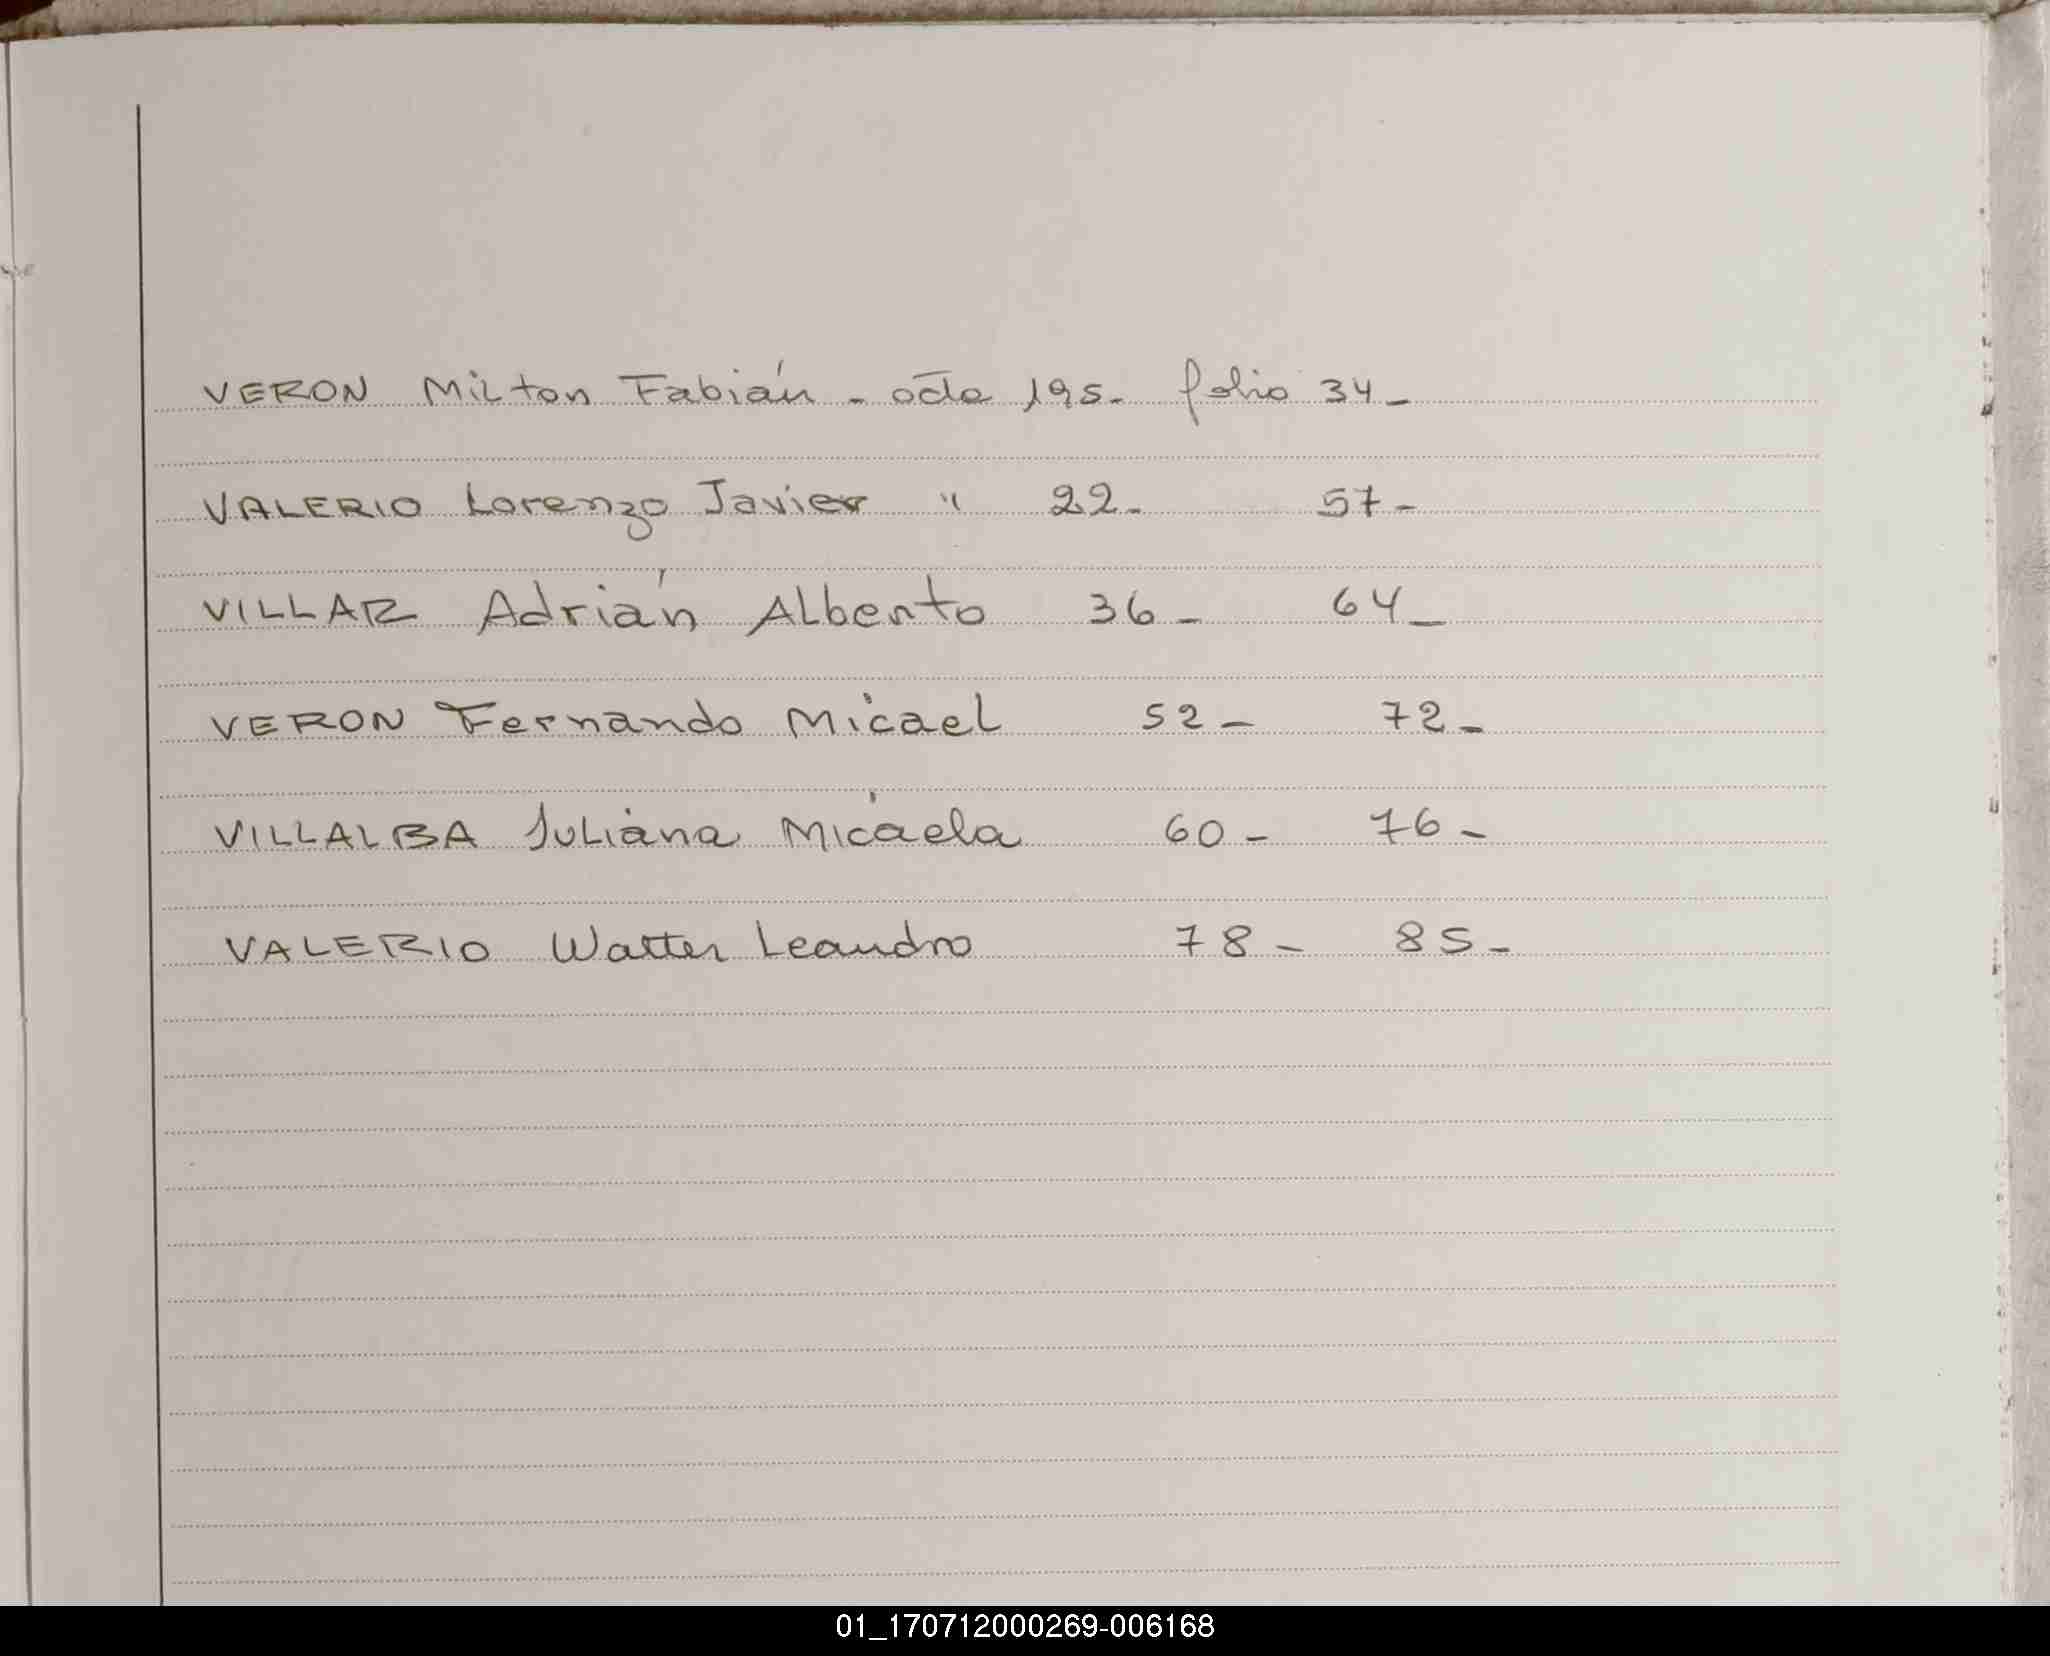 VERON Milton Fabián - acta 195- folio 34-
VALERIO Lorenzo Javier " 22- 57-
VILLAR Adrián Alberto 36- 64-
VERON Fernando Micael 52- 72-
VILLALBA Juliana Micaela 60- 76-
VALERIO Walter Leandro 78- 85-
01_170712000269-006168